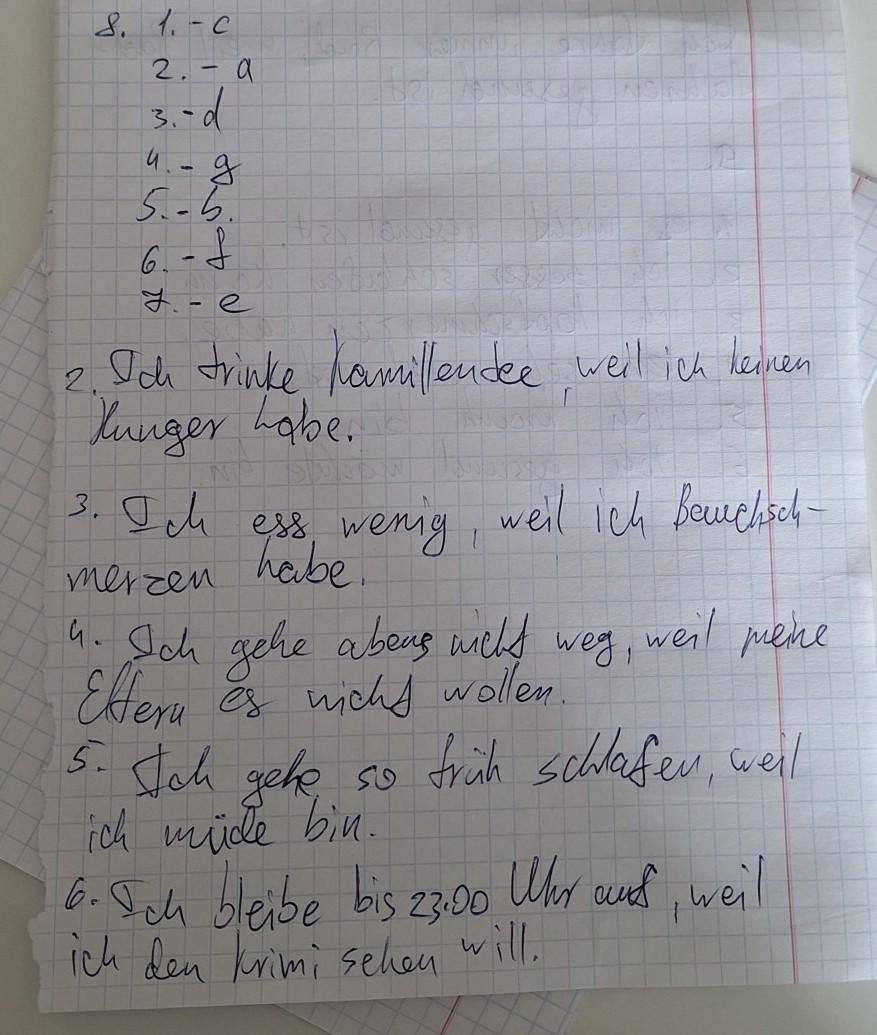 8. 1.-c
2. - a
3.-d
4. - g
5.-b.
6. - f
7. - e
2. Ich trinke Kamillentee, weil ich keinen
Hunger habe.
3. Ich ess wenig, weil ich Bauchsch-
merzen habe.
4. Ich gehe abens nicht weg, weil meine
Eltern es nicht wollen.
5. Ich gehe so früh schlafen, weil
ich müde bin.
6. Ich bleibe bis 23.00 Uhr auf, weil
ich den Krimi sehen will.